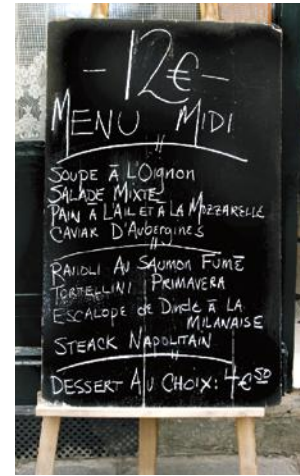 - 12€ -
MENU MIDI
SOUPE À L'OIGNON
SALADE MIXTE
PAIN À L'AIL ET À LA MOZZARELLE
CAVIAR D'AUBERGINES
RAIOLI AU SAUMON FUMÉ
TORTELLINI PRIMAVERA
ESCALOPE de DINDE À LA
MILANAISE
STEACK NAPOLITAIN
DESSERT AU CHOIX: 4€50